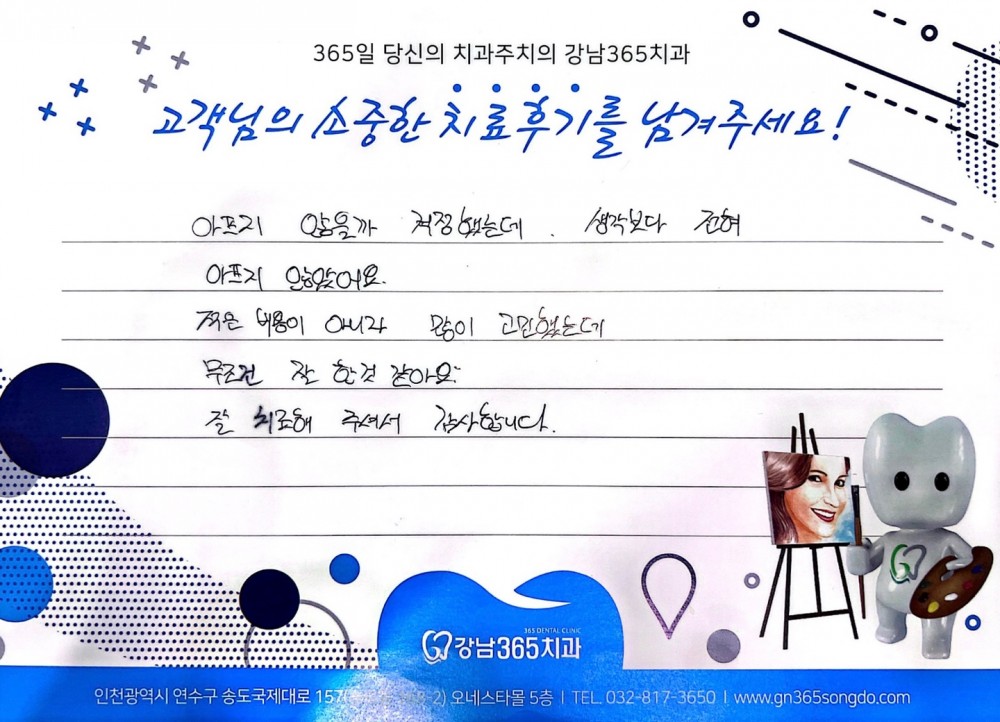 365일 당신의 치과주치의 강남365치과
고객님의 소중한 치료후기를 남겨주세요!
아프지 않을까 걱정했는데. 생각보다 전혀
아프지 않았어요.
적은 비용이 아니라 많이 고민했는데
무조건 잘 한것 같아요.
잘 치료해 주셔서 감사합니다.
365 DENTAL CLINIC
강남365치과
인천광역시 연수구 송도국제대로 157 오네스타몰 5층 | TEL. 032-817-3650 | www.gn365songdo.com